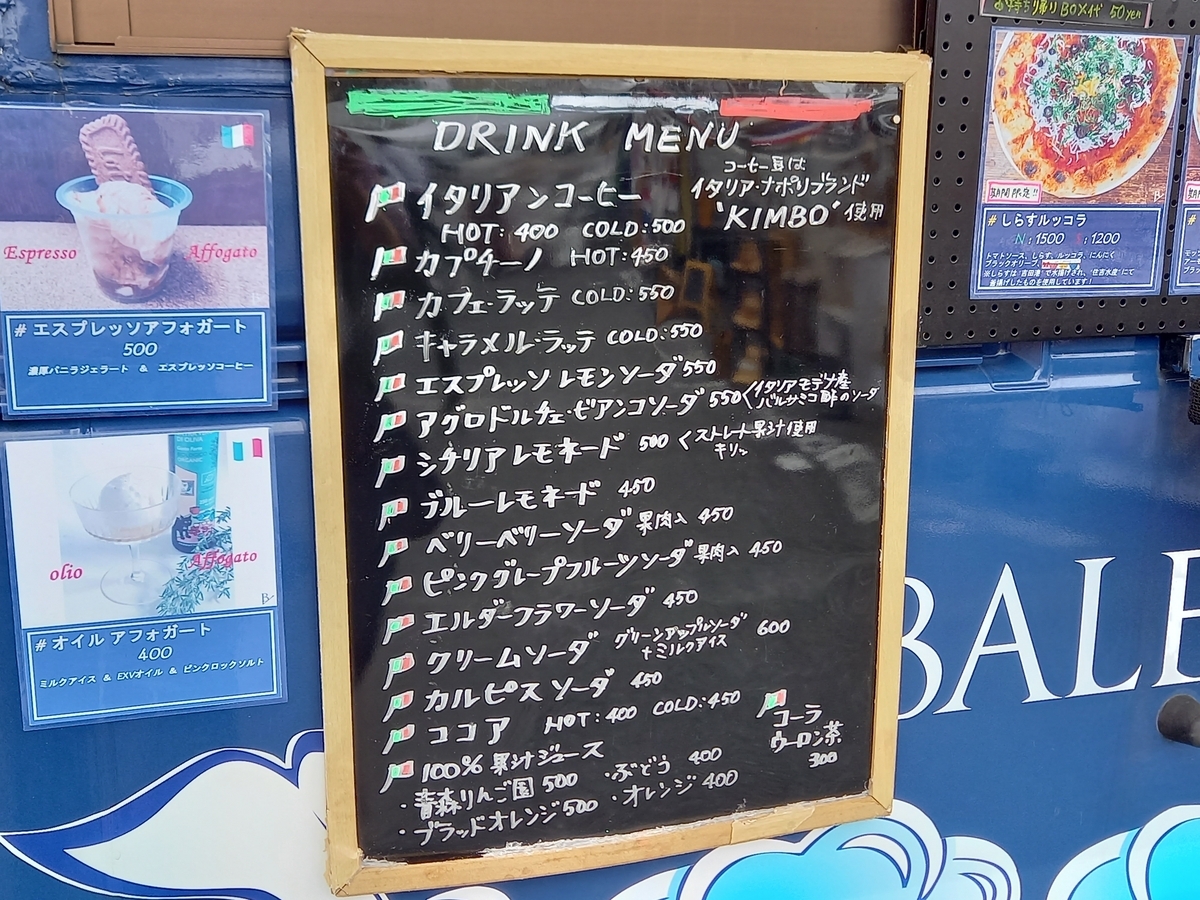 お持ち帰りBOX代 50yen
DRINK MENU
コーヒー豆は
イタリア・ナポリブランド
"KIMBO"使用
イタリアンコーヒー
HOT: 400 COLD: 500
カプチーノ HOT: 450
カフェ・ラッテ COLD: 550
キャラメル・ラッテ COLD: 550
エスプレッソレモンソーダ 550
アグロドルチェ・ビアンコソーダ 550 <イタリアモデナ産
バルサミコ酢のソーダ
シチリアレモネード 500 <ストレート果汁使用
キリッ
ブルーレモネード 450
ベリーベリーソーダ 果肉入 450
ピンクグレープフルーツソーダ 果肉入 450
エルダーフラワーソーダ 450
クリームソーダ グリーンアップルソーダ 600
+ミルクアイス
カルピスソーダ 450
ココア HOT: 400 COLD: 450
100% 果汁ジュース
・青森りんご園 500 ・ぶどう 400
・ブラッドオレンジ 500 ・オレンジ 400
コーラ
ウーロン茶
300
Espresso Affogato
# エスプレッソアフォガート
500
濃厚バニラジェラート & エスプレッソコーヒー
olio Affogato
# オイル アフォガート
400
ミルクアイス & EXVオイル & ピンクロックソルト
期間限定!!
# しらすルッコラ
N: 1500 S: 1200
トマトソース、しらす、ルッコラ、にんにく
ブラックオリーブ、
※しらすは"吉田港"で水揚げされ、"住吉水産"にて
釜揚げしたものを使用しています!
BALE